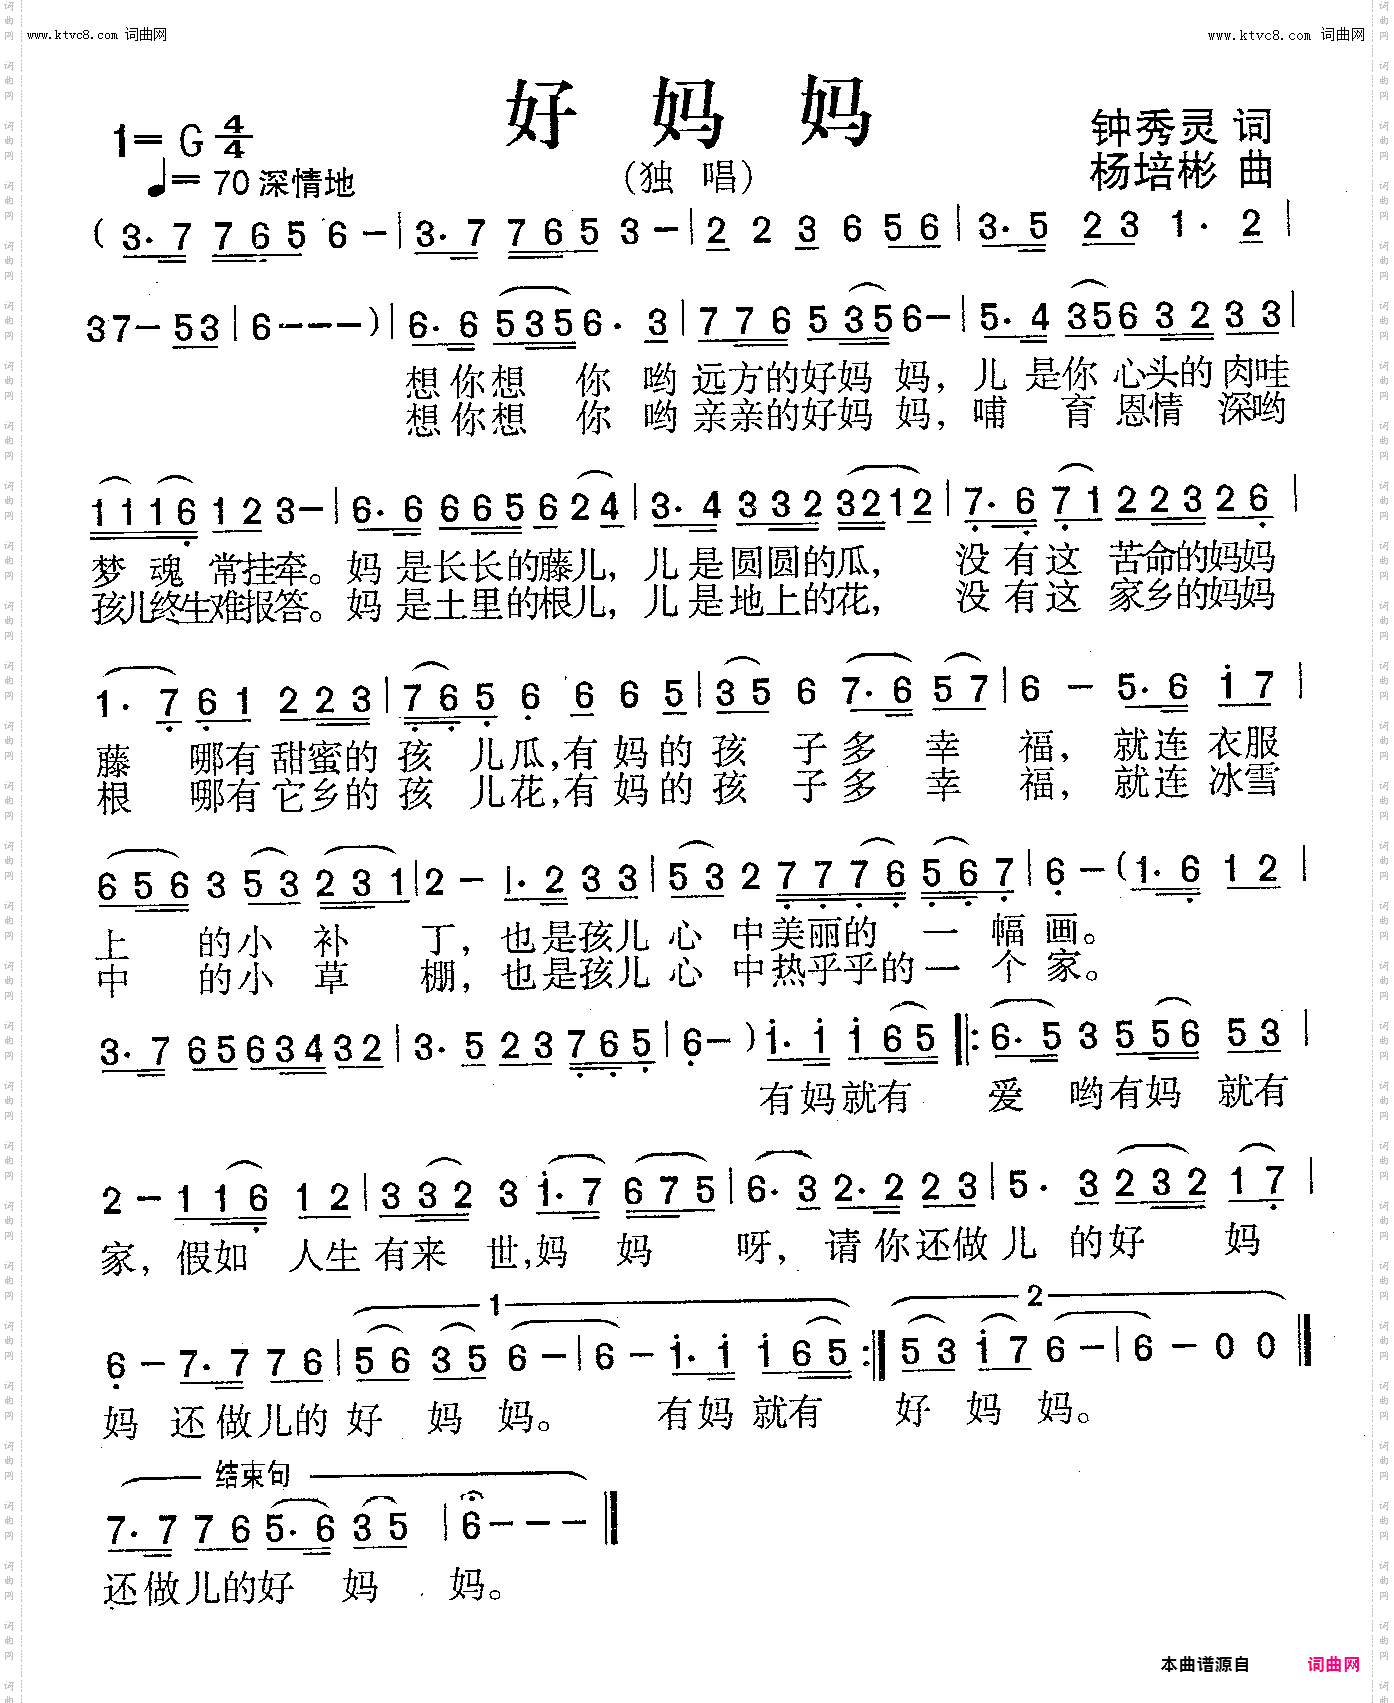 www.ktvc8.com 词曲网
www.ktvc8.com 词曲网
好 妈 妈
(独 唱)
1= G 4/4
♩= 70 深情地
钟秀灵 词
杨培彬 曲
( 3. 7 7 6 5 6 - | 3. 7 7 6 5 3 - | 2 2 3 6 5 6 | 3. 5 2 3 1. 2 |
3 7 - 5 3 | 6 - - - ) | 6. 6 5 3 5 6. 3 | 7 7 6 5 3 5 6 - | 5. 4 3 5 6 3 2 3 3 |
想你想 你 哟 远方的好妈 妈, 儿 是你 心头的 肉哇
想你想 你 哟 亲亲的好妈 妈, 哺 育 恩情 深哟
1 1 1 6 1 2 3 - | 6. 6 6 6 5 6 2 4 | 3. 4 3 3 2 3 2 1 2 | 7. 6 7 1 2 2 3 2 6 |
梦 魂 常挂牵。妈 是长长的藤儿, 儿 是圆圆的瓜, 没 有 这 苦命的妈妈
孩儿终生难报答。妈 是土里的根儿, 儿 是地上的花, 没 有 这 家乡的妈妈
1. 7 6 1 2 2 3 | 7 6 5 6 6 6 5 | 3 5 6 7. 6 5 7 | 6 - 5. 6 1 7 |
藤 哪有 甜蜜的 孩 儿瓜,有 妈 的 孩 子 多 幸 福, 就连 衣服
根 哪有 它乡的 孩 儿花,有 妈 的 孩 子 多 幸 福, 就连 冰雪
6 5 6 3 5 3 2 3 1 | 2 - 1. 2 3 3 | 5 3 2 7 7 7 6 5 6 7 | 6 - ( 1. 6 1 2 |
上 的小 补 丁, 也是孩儿 心 中美丽的 一 幅 画。
中 的小 草 棚, 也是孩儿 心 中热乎乎的 一 个 家。
3. 7 6 5 6 3 4 3 2 | 3. 5 2 3 7 6 5 | 6 - ) 1. 1 1 6 5 |: 6. 5 3 5 5 6 5 3 |
有妈就有 爱 哟有妈 就有
2 - 1 1 6 1 2 | 3 3 2 3 1. 7 6 7 5 | 6. 3 2. 2 2 3 | 5. 3 2 3 2 1 7 |
家, 假如 人生有来 世,妈 妈 呀, 请 你还做 儿 的好 妈
1
2
6 - 7. 7 7 6 | 5 6 3 5 6 - | 6 - 1. 1 1 6 5 :| 5 3 1 7 6 - | 6 - 0 0 ‖
妈 还做儿的 好 妈 妈。 有妈 就有 好 妈 妈。
结束句
7. 7 7 6 5. 6 3 5 | 6 - - - ‖
还做儿的好 妈 妈。
本曲谱源自 词曲网